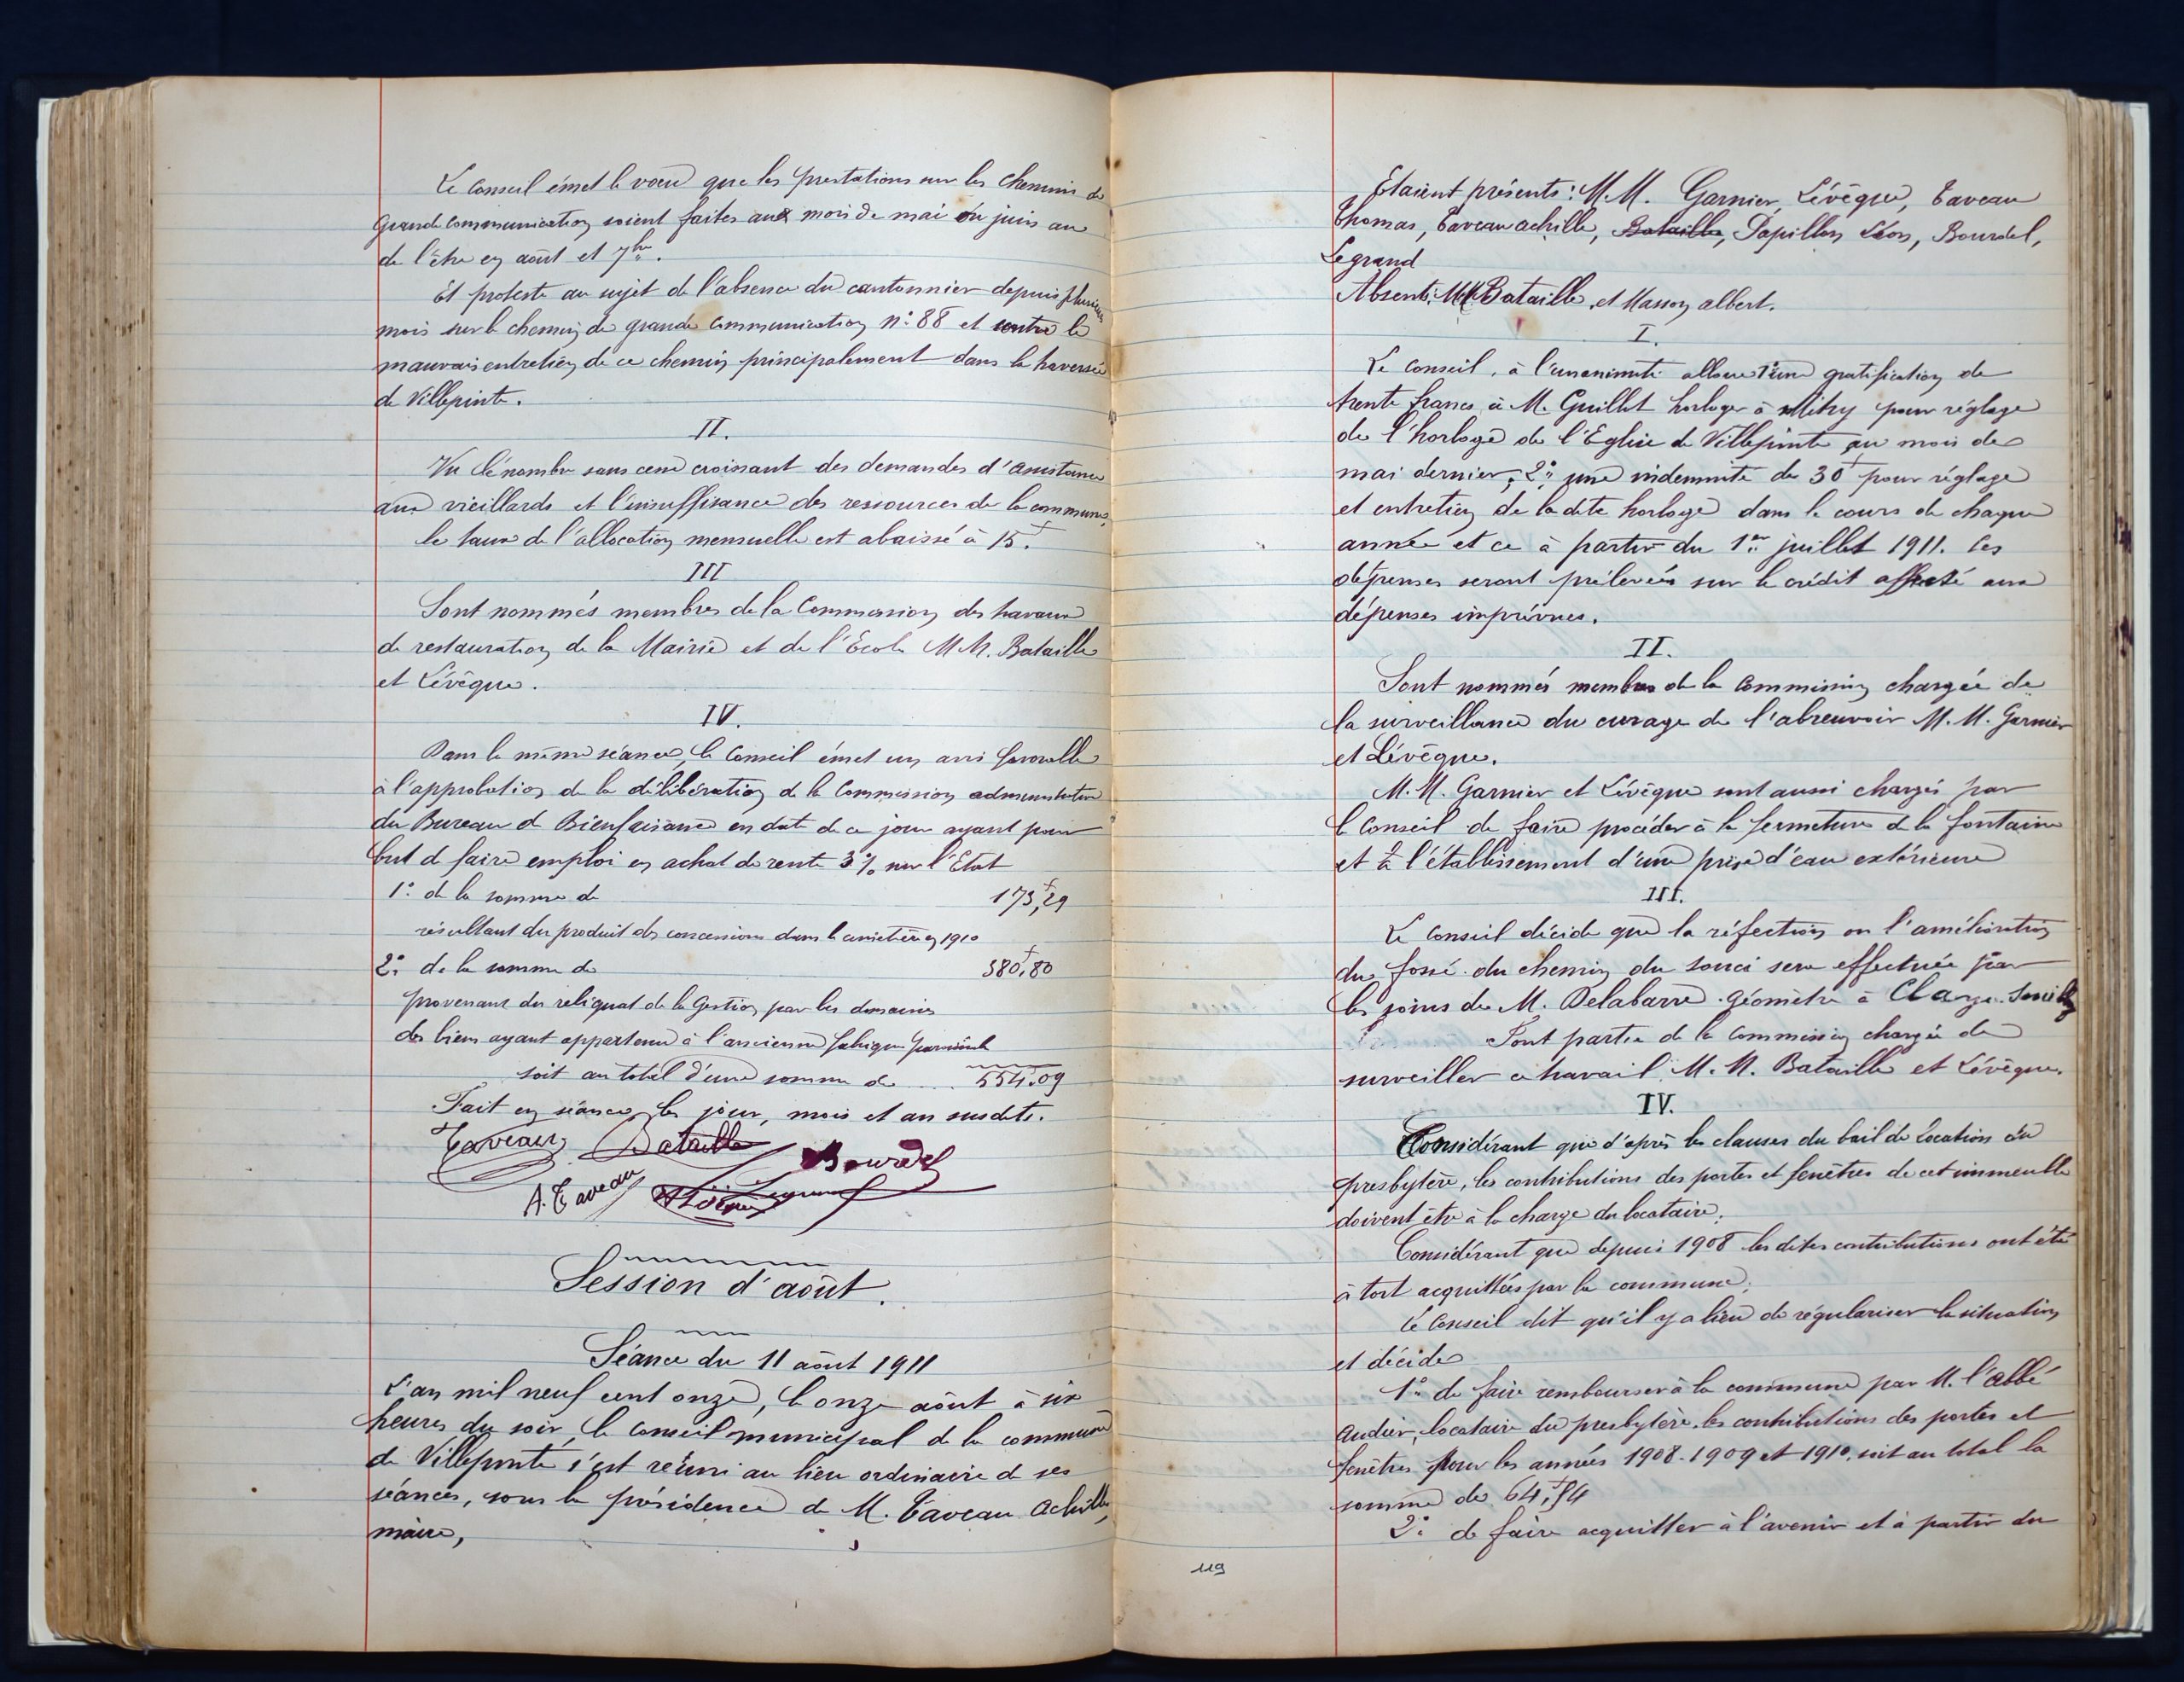 Le Conseil émet le vœu que les prestations sur les chemins de
Grande Communication soient faites aux mois de mai ou juin au
de l'être en août et 7bre.
Et proteste au sujet de l'absence du cantonnier depuis plusieurs
mois sur le chemin de grande Communication n° 88 et contre le
mauvais entretien de ce chemin principalement dans la traversée
de Villepinte.
II.
Vu le nombre sans cesse croissant des demandes d'assistance
aux vieillards et l'insuffisance des ressources de la commune,
le taux de l'allocation mensuelle est abaissé à 15f.
III
Sont nommés membres de la Commission des travaux
de restauration de la Mairie et de l'Ecole M.M. Bataille
et Lévêque.
IV.
Dans la même séance, le Conseil émet un avis favorable
à l'approbation de la délibération de la Commission administrative
du Bureau de Bienfaisance en date de ce jour ayant pour
but de faire emploi en achat de rente 3% sur l'Etat
1° de la somme de 173f,29
résultant du produit des concessions dans le cimetière en 1910
2° de la somme de 380f,80
provenant du reliquat de la Gestion par les domaines
des biens ayant appartenu à l'ancienne fabrique paroissiale
soit au total d'une somme de .... 554f.09
Fait en séance, les jour, mois et an susdits.
Taveau Bataille Bourdel
A. Taveau Legrand
Session d'août.
Séance du 11 août 1911
L'an mil neuf cent onze, le onze août à six
heures du soir, le Conseil municipal de la commune
de Villepinte s'est réuni au lieu ordinaire de ses
séances, sous la présidence de M. Taveau Achille,
maire,
Etaient présents: M.M. Garnier, Lévêque, Taveau
Thomas, Taveau achille, Bataille, Papillon Léon, Bourdel,
Legrand
Absents: MM Bataille et Masson albert.
I.
Le Conseil, à l'unanimité alloue 1° une gratification de
trente francs à M. Guillet horloger à Mitry pour réglage
de l'horloge de l'Eglise de Villepinte au mois de
mai dernier; 2° une indemnité de 30f pour réglage
et entretien de la dite horloge dans le cours de chaque
année et ce à partir du 1er juillet 1911. Ces
dépenses seront prélevées sur le crédit affecté aux
dépenses imprévues.
II.
Sont nommés membres de la Commission chargée de
la surveillance du curage de l'abreuvoir M.M. Garnier
et Lévêque.
M.M. Garnier et Lévêque sont aussi chargés par
le Conseil de faire procéder à la fermeture de la fontaine
et à l'établissement d'une prise d'eau extérieure
III.
Le Conseil décide que la réfection ou l'amélioration
du fossé du chemin du souci sera effectuée par
les soins de M. Delabarre géomètre à Claye-Souilly
Font partie de la Commission chargée de
surveiller ce travail M.M. Bataille et Lévêque.
IV.
Considérant que d'après les clauses du bail de location du
presbytère, les contributions des portes et fenêtres de cet immeuble
doivent être à la charge du locataire;
Considérant que depuis 1908 les dites contributions ont été
à tort acquittées par la commune;
Le Conseil dit qu'il y a lieu de régulariser la situation
et décide
1° de faire rembourser à la commune par M. l'abbé
Audier, locataire du presbytère, les contributions des portes et
fenêtres pour les années 1908-1909 et 1910, soit au total la
somme de
2° de faire acquitter à l'avenir et à partir du
119